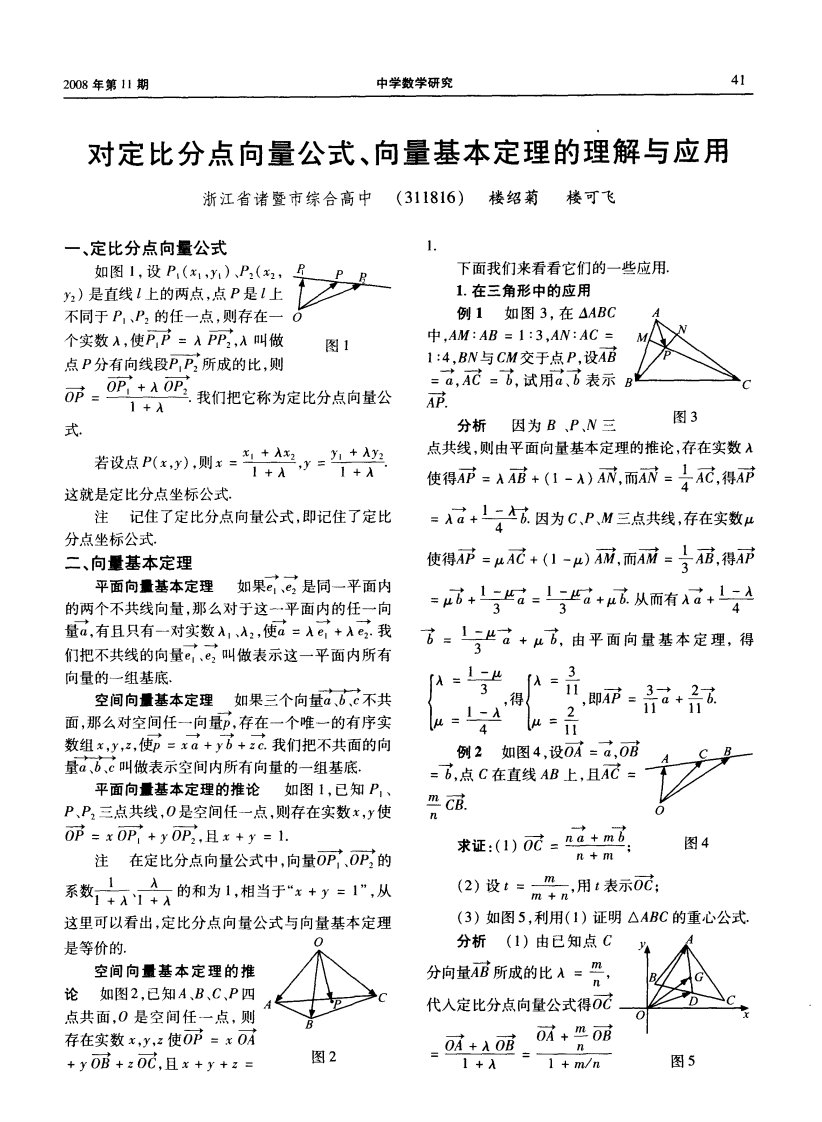 2008 年第 11 期
中学数学研究
41
对定比分点向量公式、向量基本定理的理解与应用
浙江省诸暨市综合高中 (311816) 楼绍菊 楼可飞
一、定比分点向量公式
如图 1,设 P₁(x₁,y₁)、P₂(x₂,
y₂) 是直线 l 上的两点,点 P 是 l 上
不同于 P₁、P₂ 的任一点,则存在一
个实数 λ,使$\overrightarrow{P_1P}$ = λ $\overrightarrow{PP_2}$,λ 叫做
点 P 分有向线段$\overrightarrow{P_1P_2}$ 所成的比,则
$\overrightarrow{OP} = \frac{\overrightarrow{OP_1} + λ\overrightarrow{OP_2}}{1 + λ}$. 我们把它称为定比分点向量公
式.
P₁ P P₂
O
图 1
若设点 P(x,y),则 $x = \frac{x_1 + λx_2}{1 + λ}, y = \frac{y_1 + λy_2}{1 + λ}$.
这就是定比分点坐标公式.
注 记住了定比分点向量公式,即记住了定比
分点坐标公式.
二、向量基本定理
平面向量基本定理 如果$\overrightarrow{e_1}$、$\overrightarrow{e_2}$ 是同一平面内
的两个不共线向量,那么对于这一平面内的任一向
量$\overrightarrow{a}$,有且只有一对实数 λ₁、λ₂,使$\overrightarrow{a} = λ\overrightarrow{e_1} + λ\overrightarrow{e_2}$. 我
们把不共线的向量$\overrightarrow{e_1}$、$\overrightarrow{e_2}$ 叫做表示这一平面内所有
向量的一组基底.
空间向量基本定理 如果三个向量$\overrightarrow{a}$、$\overrightarrow{b}$、$\overrightarrow{c}$不共
面,那么对空间任一向量$\overrightarrow{p}$,存在一个唯一的有序实
数组 x,y,z,使$\overrightarrow{p} = x\overrightarrow{a} + y\overrightarrow{b} + z\overrightarrow{c}$. 我们把不共面的向
量$\overrightarrow{a}$、$\overrightarrow{b}$、$\overrightarrow{c}$ 叫做表示空间内所有向量的一组基底.
平面向量基本定理的推论 如图 1,已知 P₁、
P、P₂ 三点共线,O 是空间任一点,则存在实数 x,y 使
$\overrightarrow{OP} = x\overrightarrow{OP_1} + y\overrightarrow{OP_2}$,且 x + y = 1.
注 在定比分点向量公式中,向量$\overrightarrow{OP_1}$、$\overrightarrow{OP_2}$ 的
系数$\frac{1}{1 + λ}$、$\frac{λ}{1 + λ}$ 的和为 1,相当于“x + y = 1”,从
这里可以看出,定比分点向量公式与向量基本定理
是等价的.
空间向量基本定理的推
论 如图2,已知 A、B、C、P四
点共面,O 是空间任一点, 则
存在实数 x,y,z 使$\overrightarrow{OP} = x\overrightarrow{OA}$
$+ y\overrightarrow{OB} + z\overrightarrow{OC}$,且 x + y + z =
O
A P C
B
图 2
1.
下面我们来看看它们的一些应用.
1. 在三角形中的应用
例 1 如图 3, 在 ΔABC
中,AM∶AB = 1∶3,AN∶AC =
1∶4,BN与 CM交于点 P,设$\overrightarrow{AB}$
$= \overrightarrow{a}, \overrightarrow{AC} = \overrightarrow{b}$, 试用$\overrightarrow{a}$、$\overrightarrow{b}$ 表示
$\overrightarrow{AP}$.
A
M N
P
B C
图 3
分析 因为 B 、P、N 三
点共线,则由平面向量基本定理的推论,存在实数 λ
使得$\overrightarrow{AP} = λ\overrightarrow{AB} + (1 - λ)\overrightarrow{AN}$,而$\overrightarrow{AN} = \frac{1}{4}\overrightarrow{AC}$,得$\overrightarrow{AP}$
$= λ\overrightarrow{a} + \frac{1 - λ}{4}\overrightarrow{b}$. 因为 C、P、M 三点共线,存在实数μ
使得$\overrightarrow{AP} = μ\overrightarrow{AC} + (1 - μ)\overrightarrow{AM}$,而$\overrightarrow{AM} = \frac{1}{3}\overrightarrow{AB}$,得$\overrightarrow{AP}$
$= μ\overrightarrow{b} + \frac{1 - μ}{3}\overrightarrow{a} = \frac{1 - μ}{3}\overrightarrow{a} + μ\overrightarrow{b}$. 从而有 $λ\overrightarrow{a} + \frac{1 - λ}{4}$
$\overrightarrow{b} = \frac{1 - μ}{3}\overrightarrow{a} + μ\overrightarrow{b}$, 由 平 面 向 量 基 本 定 理, 得
$\begin{cases} λ = \frac{1 - μ}{3} \\ μ = \frac{1 - λ}{4} \end{cases}$,得$\begin{cases} λ = \frac{3}{11} \\ μ = \frac{2}{11} \end{cases}$,即$\overrightarrow{AP} = \frac{3}{11}\overrightarrow{a} + \frac{2}{11}\overrightarrow{b}$.
例 2 如图 4,设$\overrightarrow{OA} = \overrightarrow{a}, \overrightarrow{OB}$
$= \overrightarrow{b}$,点 C 在直线 AB 上,且$\overrightarrow{AC} =$
$\frac{m}{n}\overrightarrow{CB}$.
A C B
O
图 4
求证:(1) $\overrightarrow{OC} = \frac{n\overrightarrow{a} + m\overrightarrow{b}}{n + m}$;
(2) 设 $t = \frac{m}{m + n}$,用 t 表示$\overrightarrow{OC}$;
(3) 如图 5,利用(1) 证明 △ABC 的重心公式.
分析 (1) 由已知点 C
分向量$\overrightarrow{AB}$ 所成的比 $λ = \frac{m}{n}$,
代入定比分点向量公式得$\overrightarrow{OC}$
$= \frac{\overrightarrow{OA} + λ\overrightarrow{OB}}{1 + λ} = \frac{\overrightarrow{OA} + \frac{m}{n}\overrightarrow{OB}}{1 + m/n}$
y A
B G
D C
O x
图 5